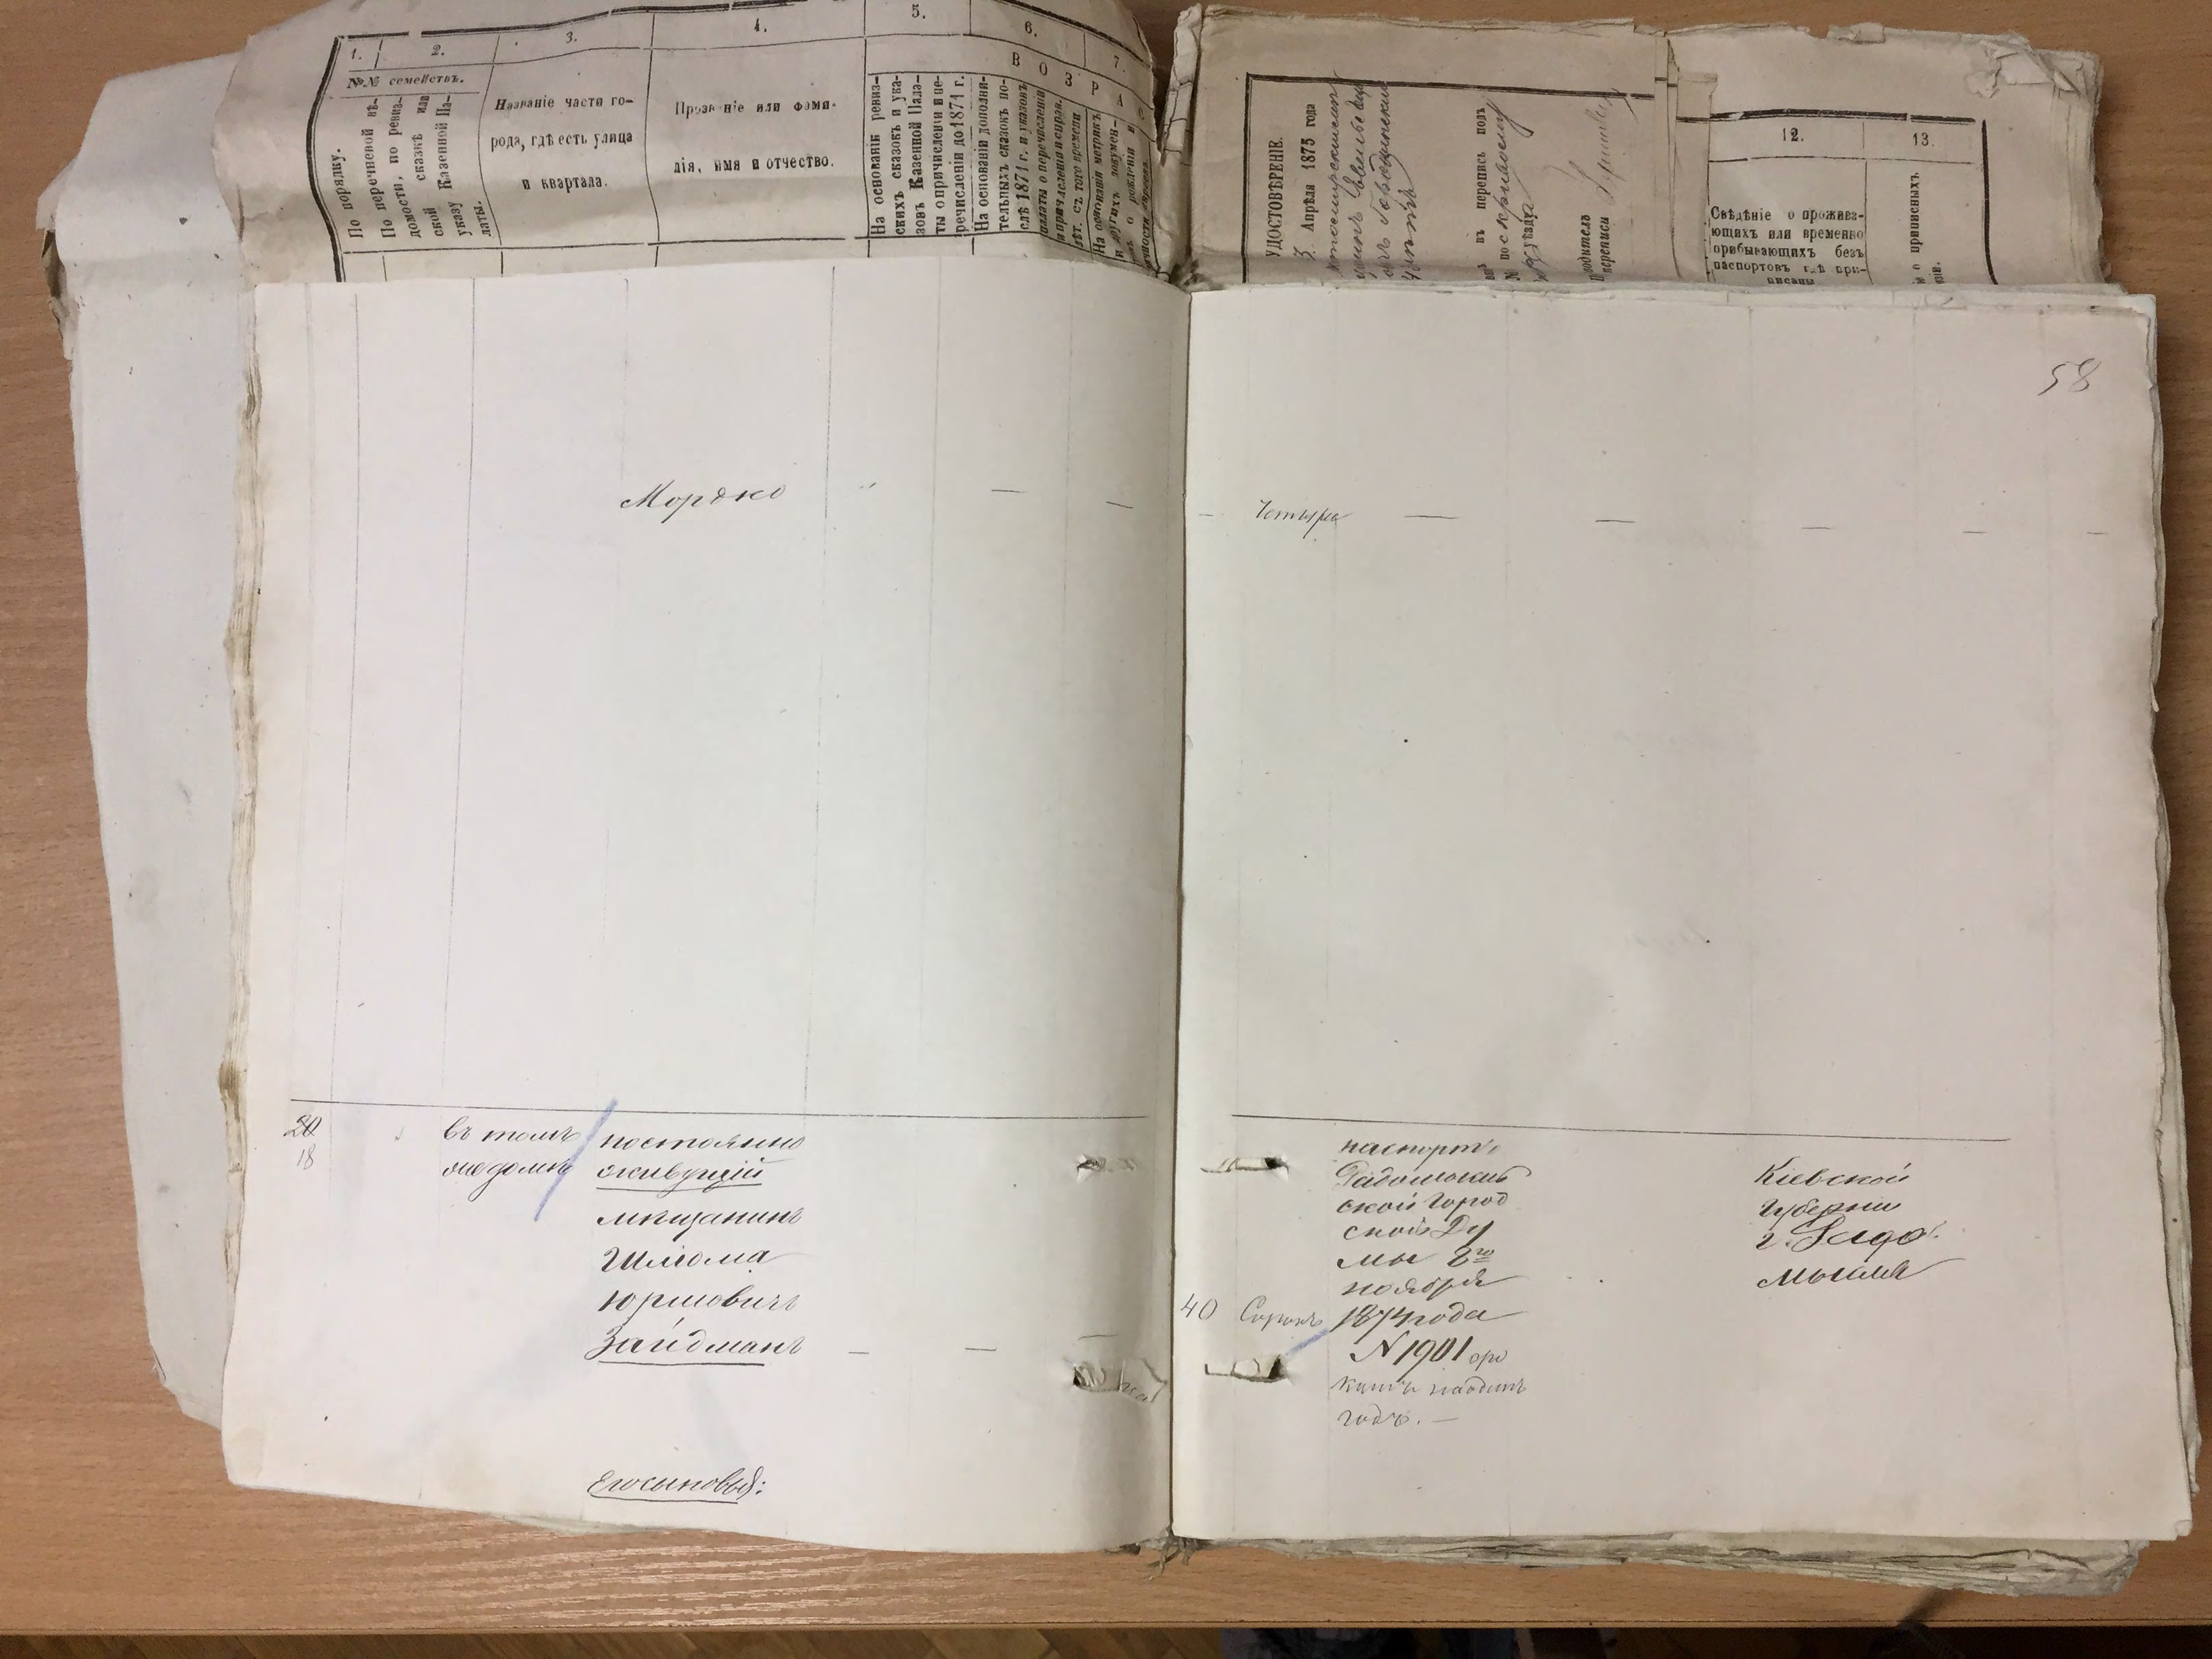 1.
2.
3.
4.
5.
6.
7.
№№ семействъ.
По порядку.
По перечневой вѣ-
домости, по ревиз-
ской сказкѣ или
указу Казенной Па-
латы.
Названіе части го-
рода, гдѣ есть улица
и квартала.
Прозваніе или фами-
лія, имя и отчество.
В О З Р А С
На основаніи ревиз-
скихъ сказокъ и ука-
зовъ Казенной Пала-
ты о причисленіи и пе-
речисленіи до 1871 г.
На основаніи дополни-
тельныхъ сказокъ по-
слѣ 1871 г. и указовъ
палаты о перечисленіи
На основаніи метрикъ
и другихъ докумен-
о рожденіи и
УДОСТОВѢРЕНІЕ.
3. Апрѣля 1875 года
въ перепись подъ
№
уѣзда
переписи
12.
13.
Свѣдѣніе о прожива-
ющихъ или временно
прибывающихъ безъ
паспортовъ гдѣ при-
писаны
о приписныхъ
58
Мордко " — —
— Четыре — — — — —
20
18
въ томъ
же домѣ
постоянно
живущій
мѣщанинъ
Шлома
Юрьовичъ
Зайдманъ — — —
Его сыновья:
40 Сорокъ
паспортъ
Радомысль
ской Город
ской Ду
мы 8го
ноября
1874 года
N 1901 сро
комъ на одинъ
годъ. —
Кіевской
Губерніи
г. Радо
мысля